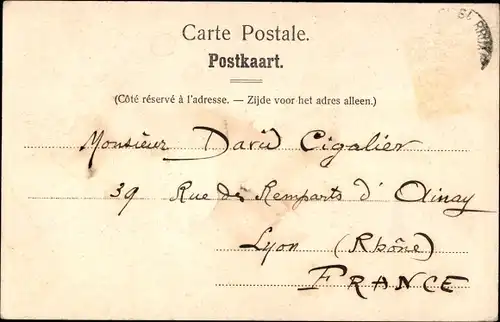 Carte Postale.
Postkaart.
(Côté réservé à l'adresse. — Zijde voor het adres alleen.)
Monsieur David Cigalier
39 Rue des Remparts d' Ainay
Lyon (Rhône)
FRANCE